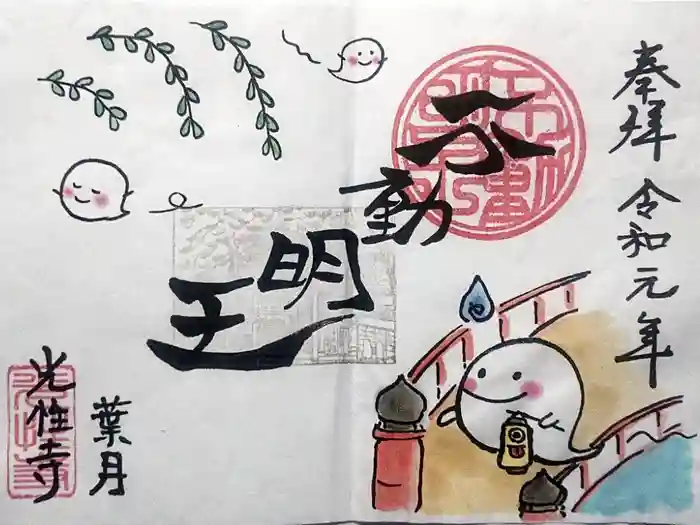 奉拝 令和元年
不動明王
葉月
光性寺